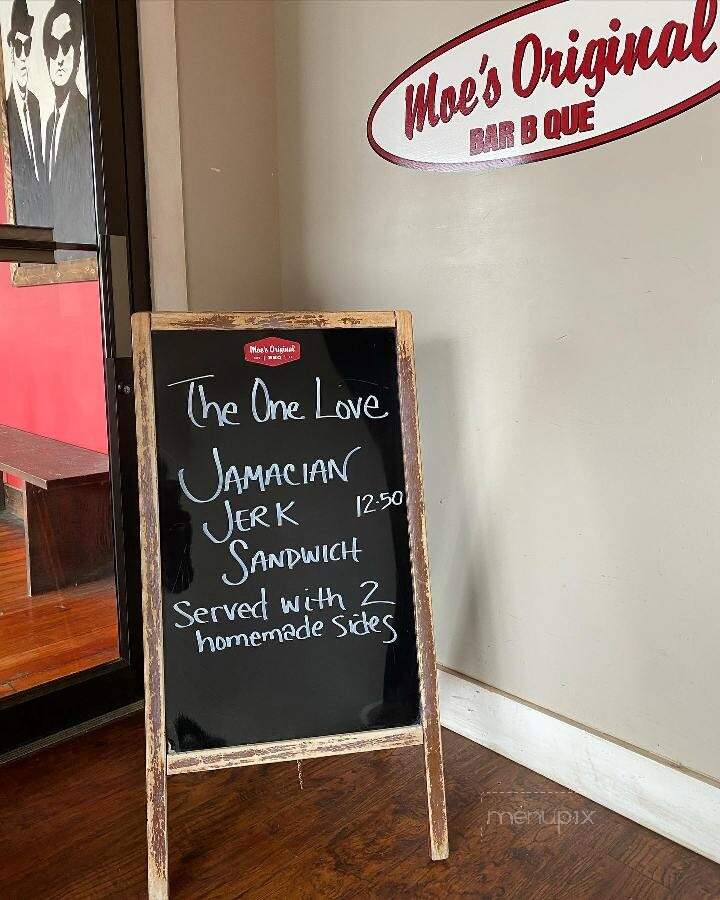 Moe's Original
BAR B QUE
Moe's Original
The One Love
JAMACIAN
JERK 12.50
SANDWICH
Served with 2
homemade sides
menupix